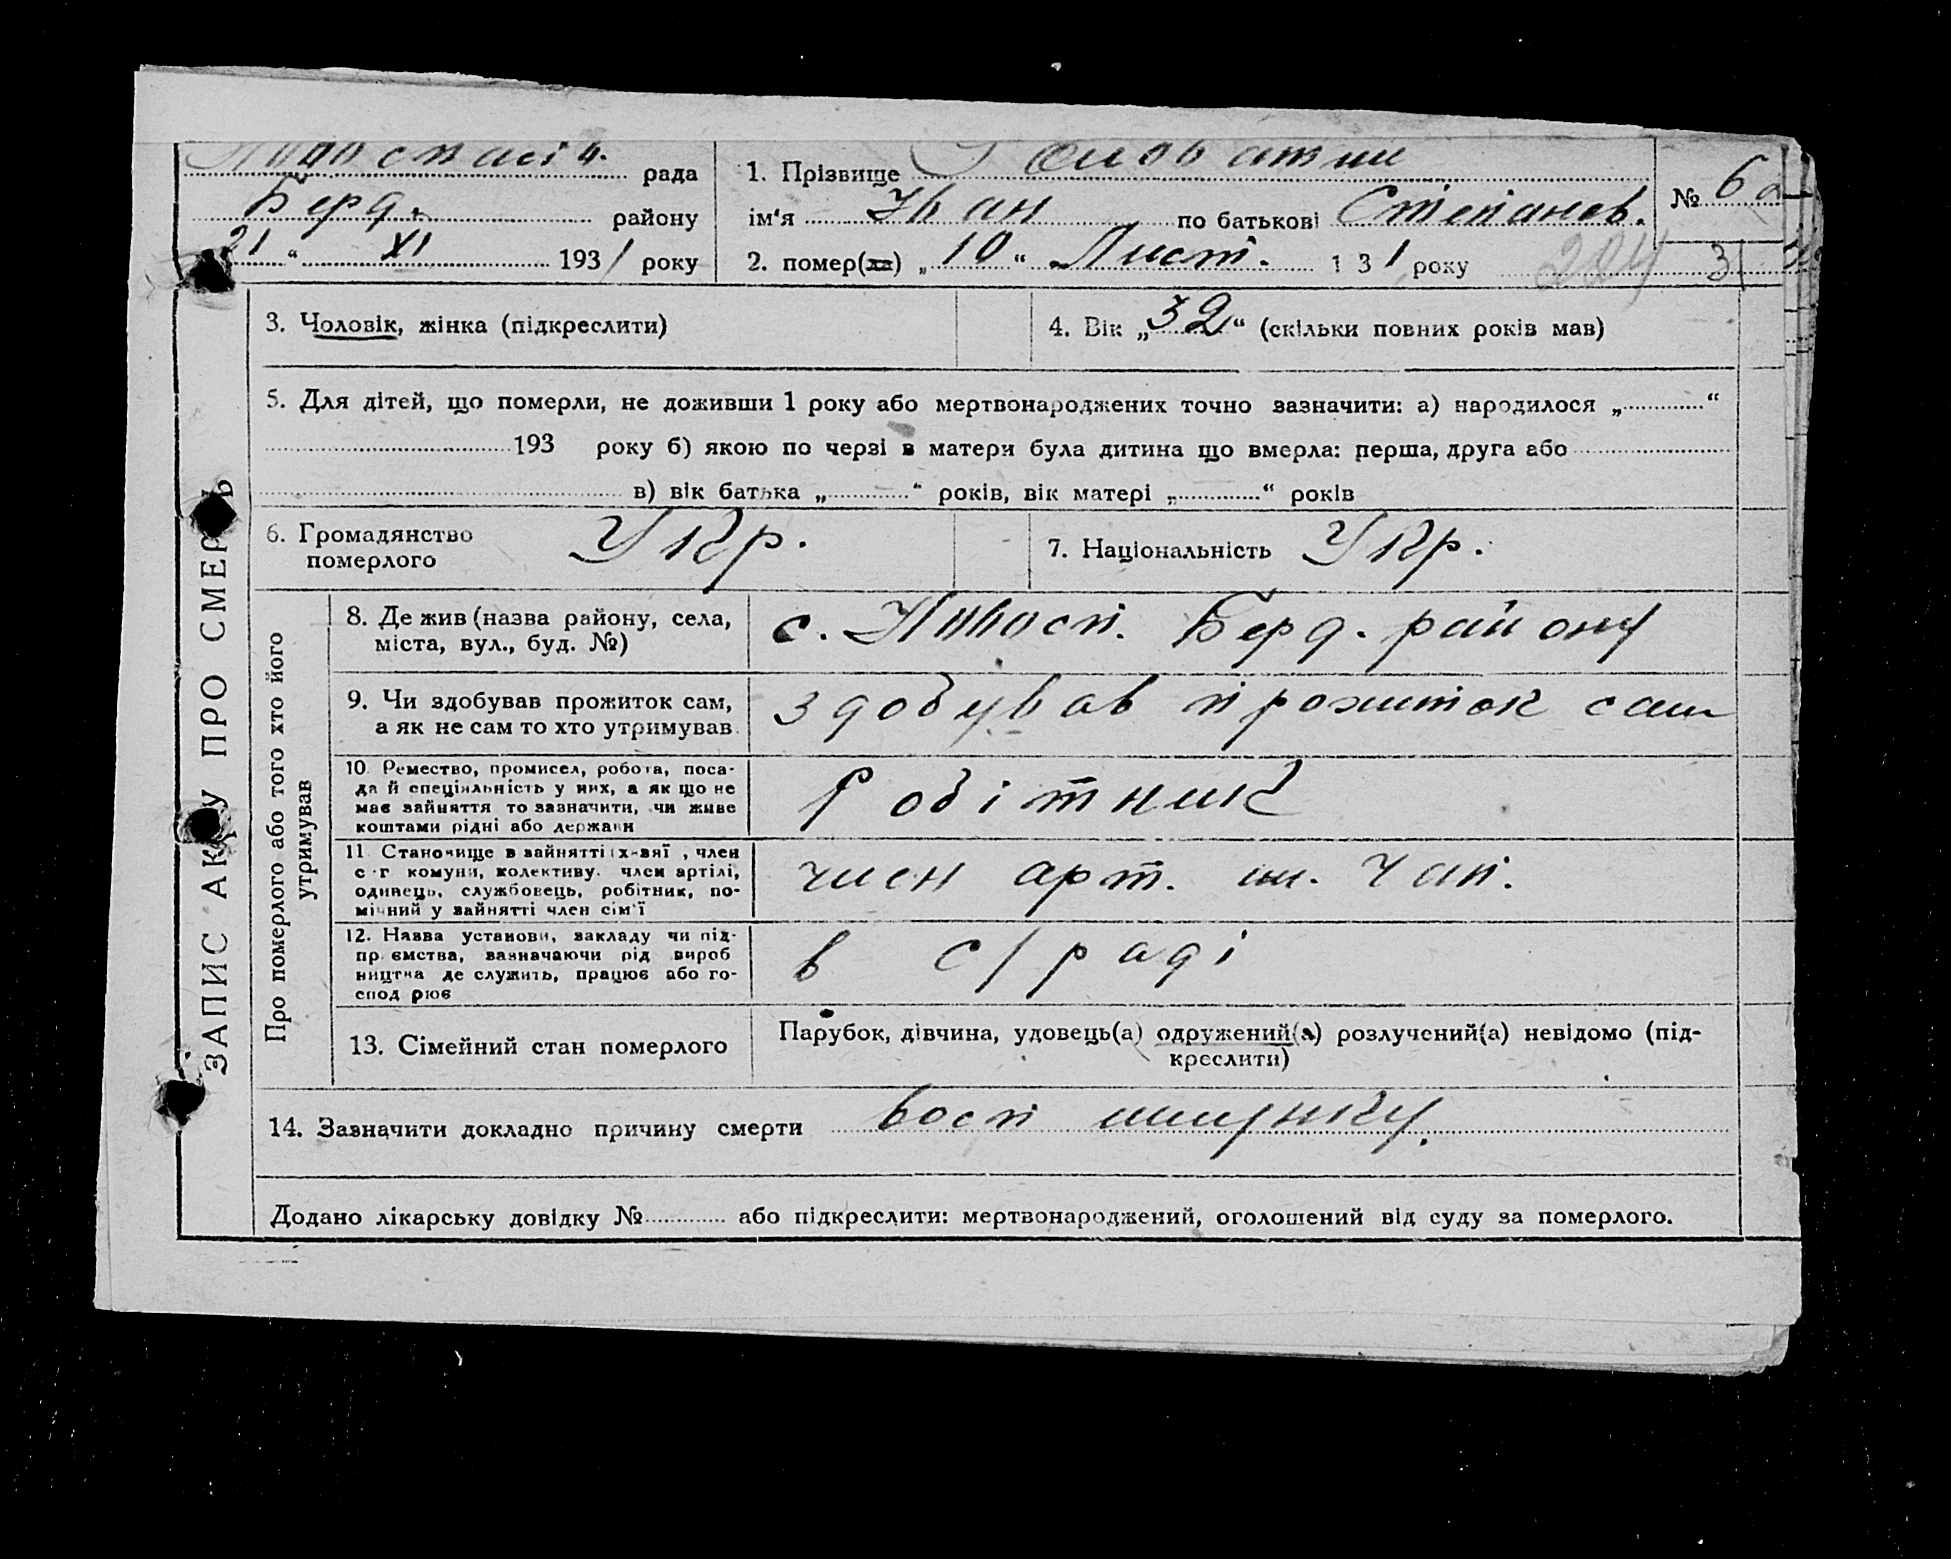 рада
Берд. району
21 " XI 1931 року
1. Прізвище Головатий
ім'я Іван по батькові Степанов.
2. помер(ла) „ 10 “ Лист. 1 31 року
№ 6
204 31
3. Чоловік, жінка (підкреслити)
4. Вік „ 32 “ (скільки повних років мав)
5. Для дітей, що померли, не доживши 1 року або мертвонароджених точно зазначити: а) народилося „ “
193 року б) якою по черзі в матери була дитина що вмерла: перша, друга або
в) вік батька „ “ років, вік матері „ “ років
6. Громадянство
померлого Укр.
7. Національність Укр.
ЗАПИС АКТУ ПРО СМЕРТЬ
Про померлого або того хто його
утримував
8. Де жив (назва району, села,
міста, вул., буд. №)
с. Новосп. Берд. району
9. Чи здобував прожиток сам,
а як не сам то хто утримував
здобував прожиток сам
10. Ремество, промисел, робота, поса-
да й спеціяльність у них, а як що не
має зайняття то зазначити, чи живе
коштами рідні або держави
Робітник
11 Становище в зайнятті , член
с-г комуни, колективу, член артілі,
одинець, службовець, робітник, по-
мічний у зайнятті член сім'ї
член арт. им. Чап.
12. Назва установи, закладу чи під-
приємства, зазначаючи рід вироб
ництва де служить, працює або го-
сподрює
в с/раді
13. Сімейний стан померлого
Парубок, дівчина, удовець(а) одружений(а) розлучений(а) невідомо (під-
креслити)
14. Зазначити докладно причину смерти восп шлунку.
Додано лікарську довідку № або підкреслити: мертвонароджений, оголошений від суду за померлого.